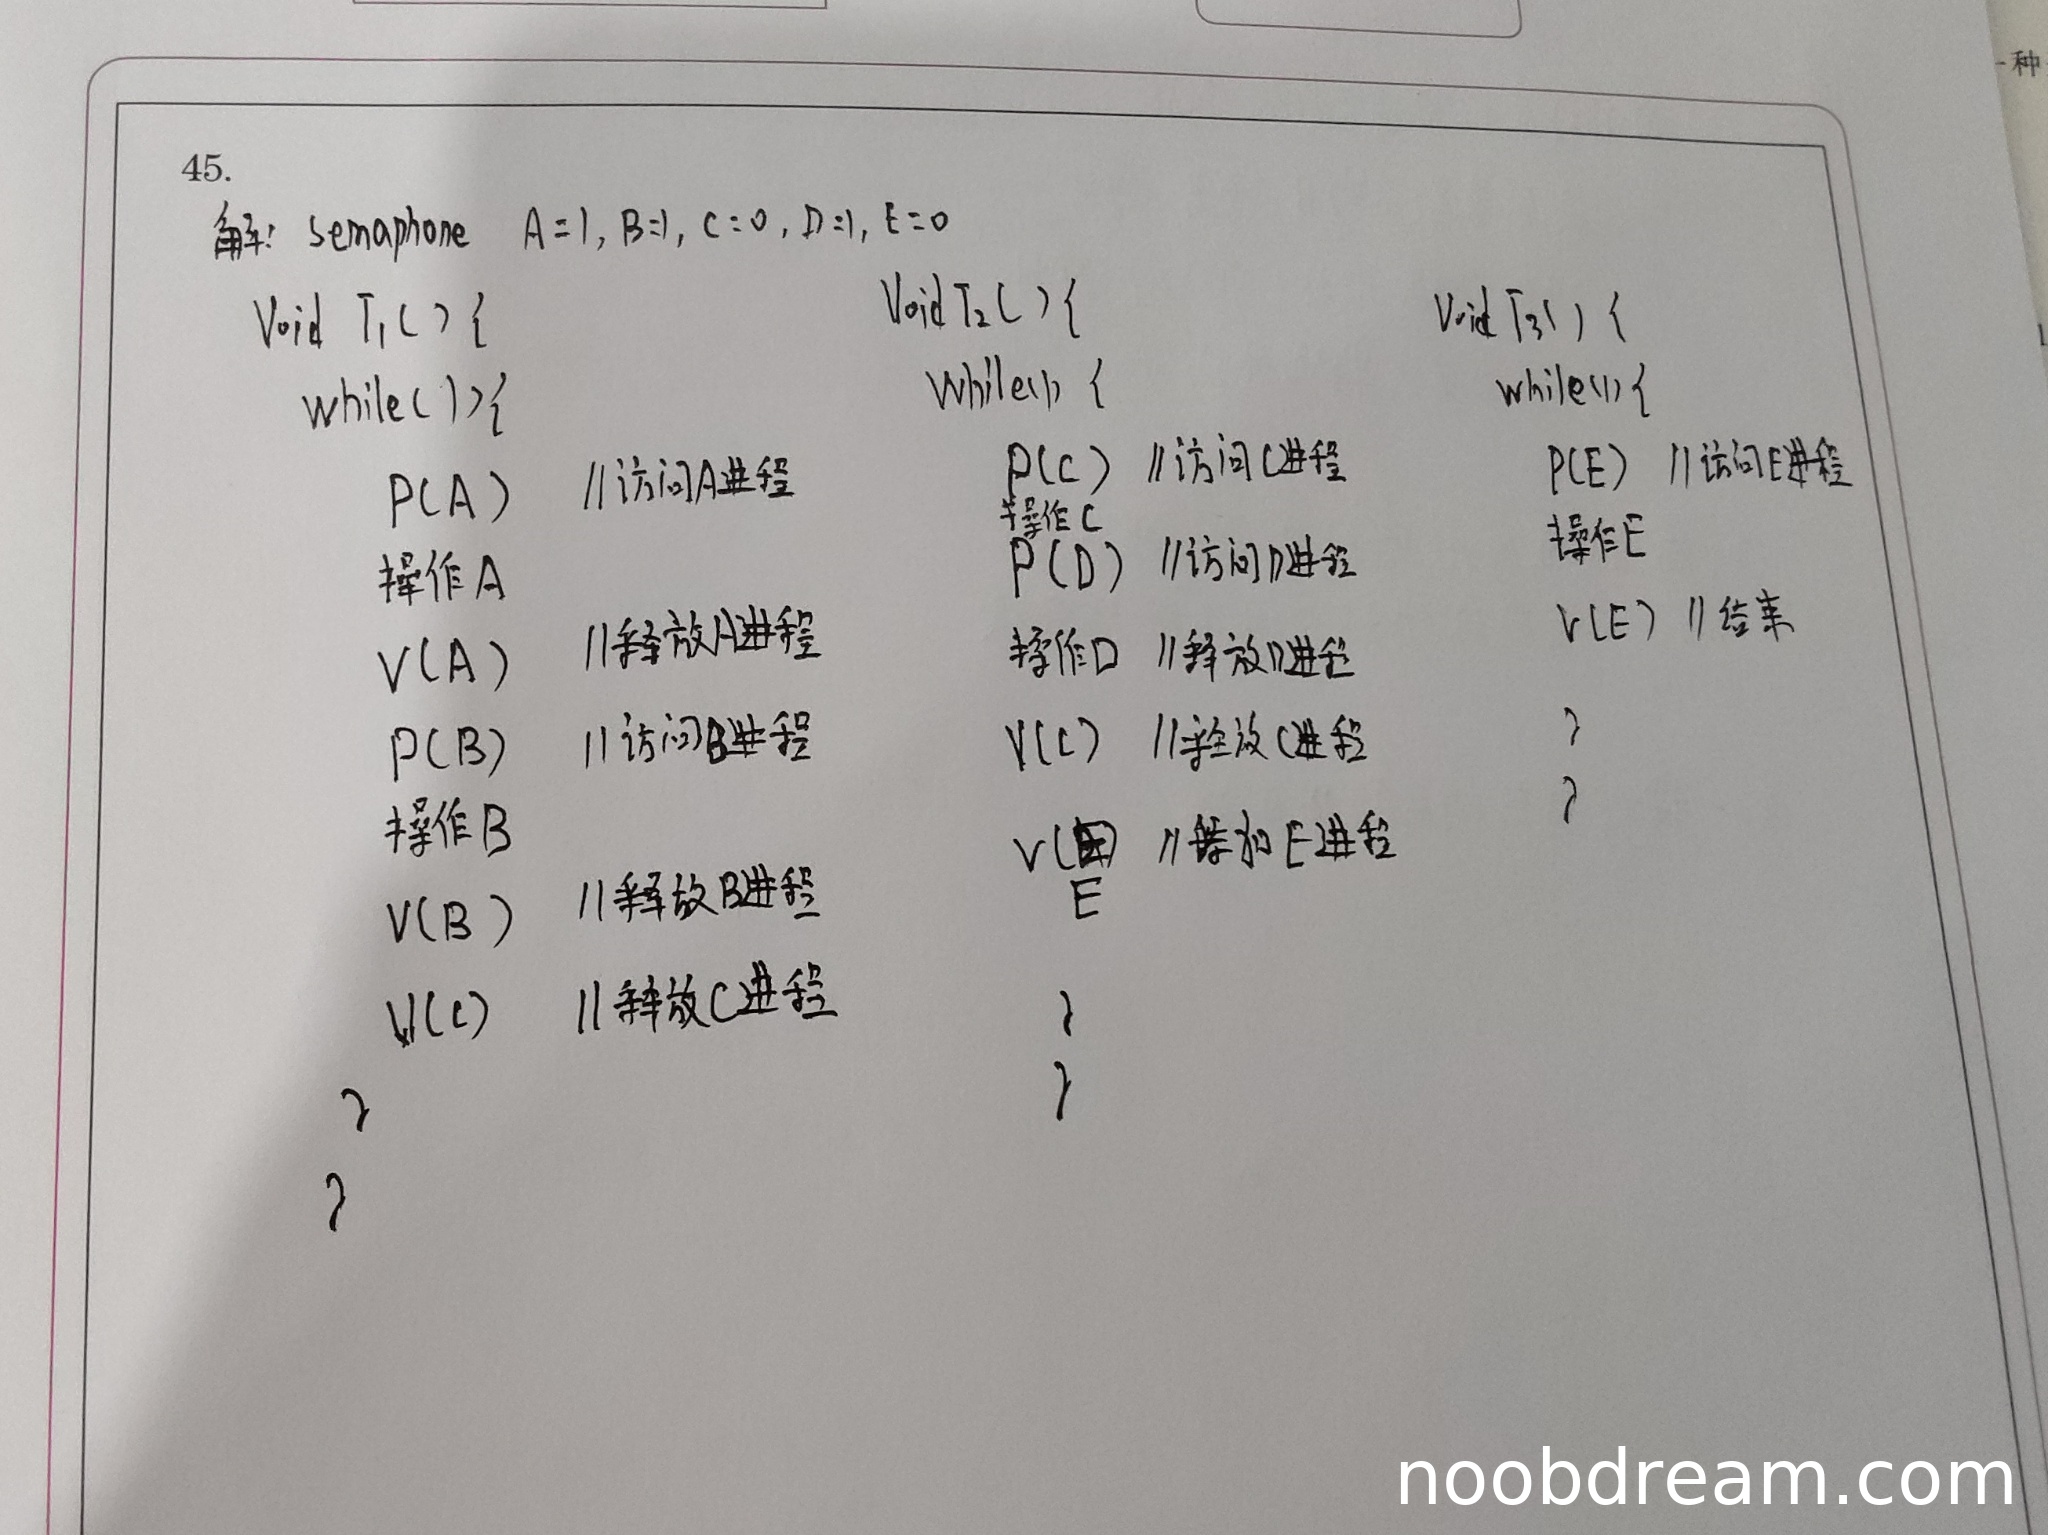 种
45.
解: semaphone A=1, B=1, C=0, D=1, E=0
Void T₁( ) {
while(1){
P(A) //访问A进程
操作A
V(A) //释放A进程
P(B) //访问B进程
操作B
V(B) //释放B进程
V(C) //释放C进程
}
}
Void T₂( ) {
While(1) {
P(C) //访问C进程
操作C
P(D) //访问D进程
操作D //释放D进程
V(C) //释放C进程
V( E //释放E进程
}
}
Void T₃( ) {
while(1){
P(E) //访问E进程
操作E
V(E) //结束
}
}
noobdream.com